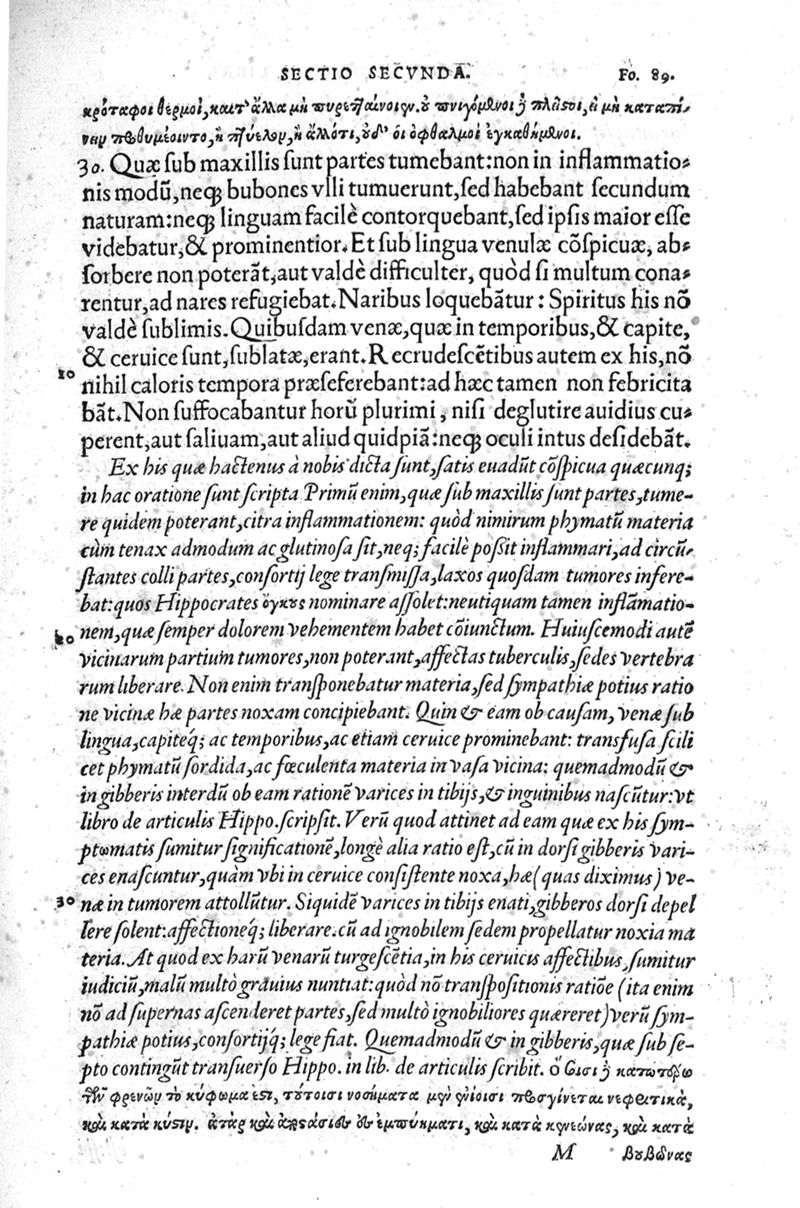 SECTIO SECVNDA. Fo. 89.
κρόταφοι θερμοὶ, και τ' ἄλλα μὴ πυρεταίνοιεν. οὐ πνιγόμενοι δὲ πλεῖστοι, εἰ μὴ καταπί-
νειν προθυμέοιντο, ἢ πτύελον, ἢ ἄλλότι, οὐδ' οι οφθαλμοὶ ἐγκαθήμενοι.
30. Quæ sub maxillis sunt partes tumebant: non in inflammatio-
nis modũ, neq; bubones vlli tumuerunt, sed habebant secundum
naturam: neq; linguam facilè contorquebant, sed ipsis maior esse
videbatur, & prominentior. Et sub lingua venulæ cõspicuæ, ab-
sorbere non poterãt, aut valdè difficulter, quòd si multum cona-
rentur, ad nares refugiebat. Naribus loquebãtur: Spiritus his nõ
valdè sublimis. Quibusdam venæ, quæ in temporibus, & capite,
& ceruice sunt, sublatæ, erant. Recrudescẽtibus autem ex his, nõ
10 nihil caloris tempora præseferebant: ad hæc tamen non febricita
bãt. Non suffocabantur horũ plurimi, nisi deglutire auidius cu-
perent, aut saliuam, aut aliud quidpiã: neq; oculi intus desidebãt.
Ex his quæ hactenus à nobis dicta sunt, satis euadũt cõspicua quæcunq;
in hac oratione sunt scripta Primũ enim, quæ sub maxillis sunt partes, tume-
re quidem poterant, citra inflammationem: quòd nimirum phymatũ materia
cùm tenax admodum ac glutinosa sit, neq; facilè possit inflammari, ad circũ-
stantes colli partes, consortij lege transmissa, laxos quosdam tumores infere-
bat: quos Hippocrates ὄγκους nominare assolet: neutiquam tamen inflãmatio-
20 nem, quæ semper dolorem vehementem habet cõiunctum. Huiuscemodi autẽ
vicinarum partium tumores, non poterant, affectas tuberculis, sedes vertebra
rum liberare. Non enim transponebatur materia, sed sympathiæ potius ratio
ne vicinæ hæ partes noxam concipiebant. Quin & eam ob causam, venæ sub
lingua, capiteq́; ac temporibus, ac etiam ceruice prominebant: transfusa scili
cet phymatũ sordida, ac fœculenta materia in vasa vicina: quemadmodũ &
in gibberis interdũ ob eam rationẽ varices in tibijs, & inguinibus nascũtur: vt
libro de articulis Hippo. scripsit. Verũ quod attinet ad eam quæ ex his sym-
ptωmatis sumitur significationẽ, longè alia ratio est, cũ in dorsi gibberis vari-
ces enascuntur, quàm vbi in ceruice consistente noxa, hæ (quas diximus) ve-
30 næ in tumorem attollũtur. Siquidẽ varices in tibijs enati, gibberos dorsi depel
lere solent: affectioneq́; liberare. cũ ad ignobilem sedem propellatur noxia ma
teria. At quod ex harũ venarũ turgescẽtia, in his ceruicis affectibus, sumitur
iudiciũ, malũ multò grauius nuntiat: quòd nõ transpositionis ratiõe (ita enim
nõ ad supernas ascenderet partes, sed multò ignobiliores quæreret) verũ sym-
pathiæ potius, consortijq́; lege fiat. Quemadmodũ & in gibberis, quæ sub se-
pto contingũt transuerso Hippo. in lib. de articulis scribit. ὁκόσισι δὲ κατωτέρω
τῶν φρενῶν τὸ κύφωμα ἐστι, τούτοισι νοσήματα μὲν ἐνίοισι προσγίνεται νεφριτικὰ,
καὶ κατὰ κύστιν. ἀτὰρ καὶ ἀποστάσιες ἐμπυήματι, καὶ κατὰ κενεῶνας, καὶ κατὰ
M βουβῶνας